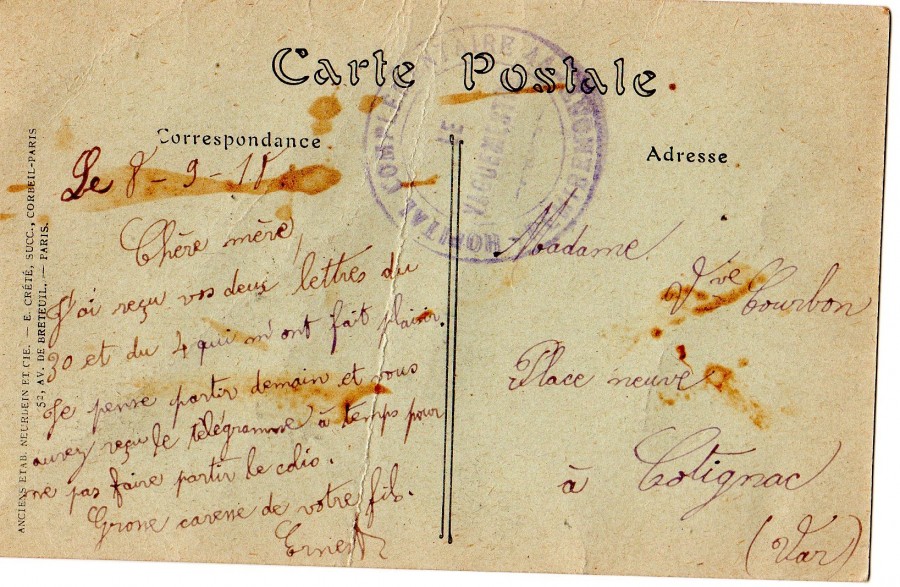 Carte Postale.
HOPITAL COMPLEMENTAIRE
LE
VAGUEMESTRE
Correspondance
Le 8-9-18
Chère mère,
J'ai reçu vos deux lettres du
30 et du 4 qui m'ont fait plaisir.
Je pense partir demain et vous
aurez reçu le télégramme à temps pour
ne pas faire partir le colis.
Grosse caresse de votre fils.
Ernest
Adresse
Madame
Vve Courbon
Place neuve
à Cotignac
(Var)
ANCIENS ETAB. NEURDEIN ET CIE. — E. CRÉTÉ, SUCC., CORBEIL-PARIS
52, AV. DE BRETEUIL. — PARIS.